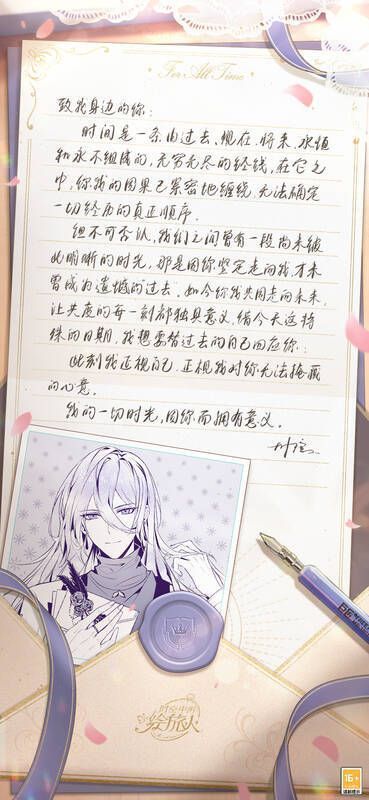 For All Time
致我身边的你：
时间是一条由过去、现在、将来、永恒
和永不组成的，无穷无尽的经线，在它之
中，你我的因果已紧密地缠绕，无法确定
一切经历的真正顺序。
但不可否认，我们之间曾有一段尚未彼
此明晰的时光，那是因你坚定走向我，才未
曾成为遗憾的过去。如今你我共同走向未来，
让共度的每一刻都独具意义，借今天这特
殊的日期，我想要替过去的自己回应你：
此刻我正视自己，正视我对你无法掩藏
的心意。
我的一切时光，因你而拥有意义。
时空中的
绘旅人
16+
适龄提示